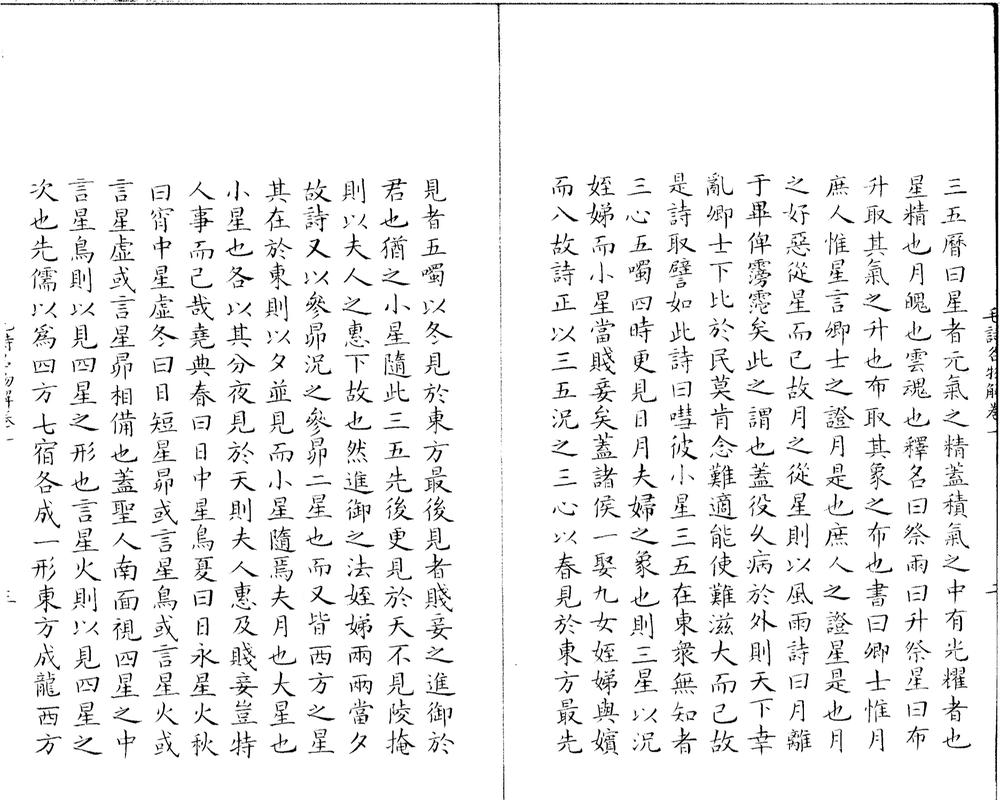 三五曆曰星者元氣之精蓋積氣之中有光耀者也
星精也月魄也雲魂也釋名曰祭雨曰升祭星曰布
升取其氣之升也布取其象之布也書曰卿士惟月
庶人惟星言卿士之證月是也庶人之證星是也月
之好惡從星而已故月之從星則以風雨詩曰月離
于畢俾霶霑矣此之謂也蓋役久病於外則天下幸
亂卿士下比於民莫肯念難適能使難滋大而已故
是詩取譬如此詩曰嘒彼小星三五在東衆無知者
三心五噣四時更見日月夫婦之象也則三星以況
姪娣而小星當賤妾矣蓋諸侯一娶九女姪娣與嬪
而八故詩正以三五況之三心以春見於東方最先
見者五噣以冬見於東方最後見者賤妾之進御於
君也猶之小星隨此三五先後更見於天不見陵掩
則以夫人之惠下故也然進御之法姪娣兩兩當夕
故詩又以參昴況之參昴二星也而又皆西方之星
其在於東則以夕並見而小星隨焉夫月也大星也
小星也各以其分夜見於天則夫人惠及賤妾豈特
人事而已哉堯典春曰日中星鳥夏曰日永星火秋
曰宵中星虛冬曰日短星昴或言星鳥或言星火或
言星虛或言星昴相備也蓋聖人南面視四星之中
言星鳥則以見四星之形也言星火則以見四星之
次也先儒以為四方七宿各成一形東方成龍西方